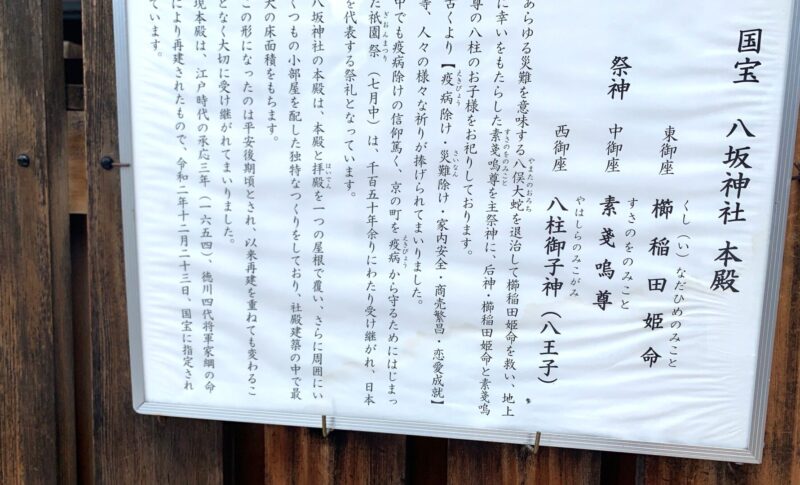 国宝 八坂神社 本殿
祭神
東御座 櫛稲田姫命
くし(い)なだひめのみこと
中御座 素戔嗚尊
すさのをのみこと
西御座 八柱御子神(八王子)
やはしらのみこがみ
あらゆる災難を意味する八俣大蛇を退治して櫛稲田姫命を救い、地上
やまたのおろち
に幸いをもたらした素戔嗚尊を主祭神に、后神・櫛稲田姫命と素戔嗚
すさのをのみこと
尊の八柱のお子様をお祀りしております。
古くより【疫病除け・災難除け・家内安全・商売繁昌・恋愛成就】
えきびょう さいなん
等、人々の様々な祈りが捧げられてまいりました。
中でも疫病除けの信仰篤く、京の町を疫病から守るためにはじまっ
えきびょう
た祇園祭(七月中)は、千百五十年余りにわたり受け継がれ、日本
ぎおんまつり
を代表する祭礼となっています。
八坂神社の本殿は、本殿と拝殿を一つの屋根で覆い、さらに周囲にい
はいでん
くつもの小部屋を配した独特なつくりをしており、社殿建築の中で最
大の床面積をもちます。
この形になったのは平安後期頃とされ、以来再建を重ねても変わるこ
となく大切に受け継がれてまいりました。
現本殿は、江戸時代の承応三年(一六五四)、徳川四代将軍家綱の命
により再建されたもので、令和二年十二月二十三日、国宝に指定され
ています。